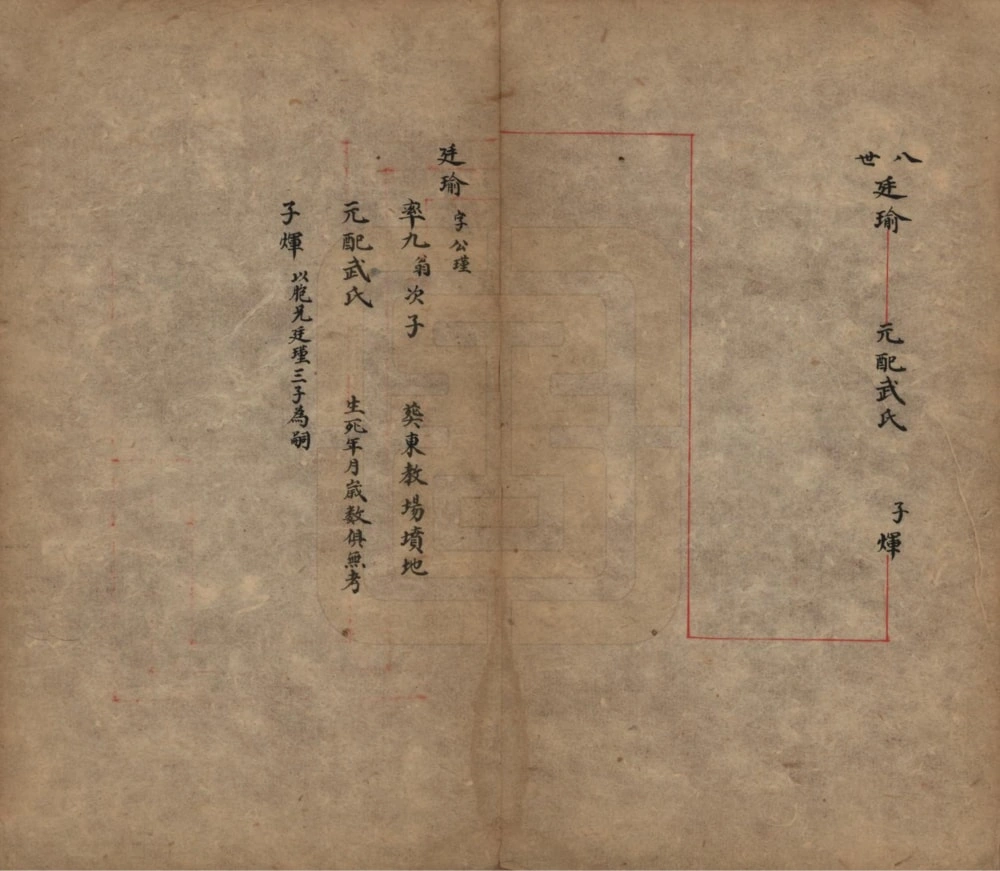 八世
廷瑜 元配武氏 子煇
廷瑜 字公瑾
率九翁次子 葬東教場墳地
元配武氏 生死年月歲數俱無考
子煇 以胞兄廷瑾三子為嗣